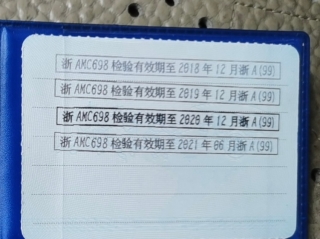 浙AMC698检验有效期至2018年12月浙A(99)
浙AMC698检验有效期至2019年12月浙A(99)
浙AMC698检验有效期至2020年12月浙A(99)
浙AMC698检验有效期至2021年06月浙A(99)